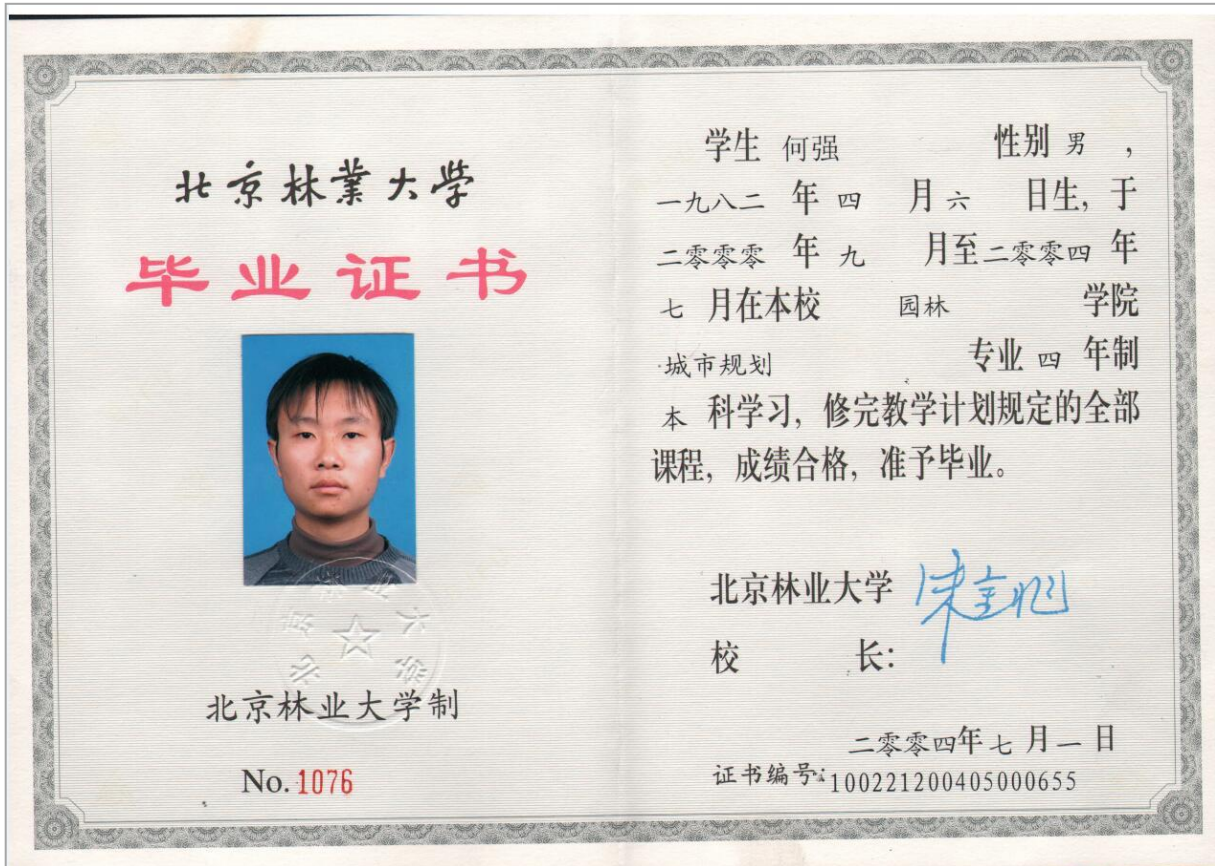 北京林業大学
毕业证书
北京林业大学
北京林业大学制
No.1076
学生 何强 性别 男 ，
一九八二 年 四 月 六 日生, 于
二零零零 年 九 月至 二零零四 年
七 月在本校 园林 学院
城市规划 专业 四 年制
本 科学习, 修完教学计划规定的全部
课程, 成绩合格, 准予毕业。
北京林业大学
校 长:
二零零四年 七 月 一 日
证书编号:100221200405000655